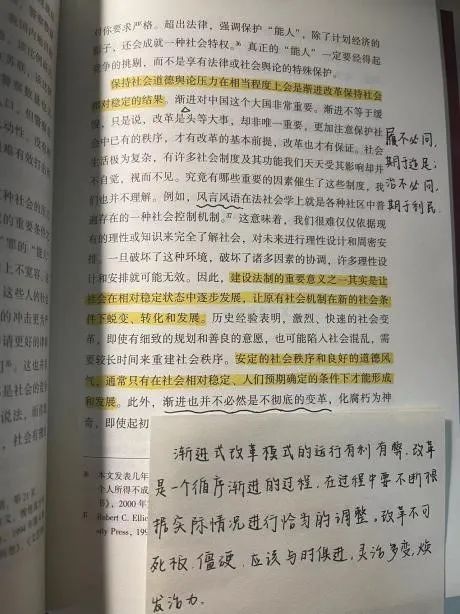 对你要求严格。超出法律,强调保护“能人”,除了计划经济的
影子,还会成就一种社会特权。³⁶ 真正的“能人”一定要经得起
竞争的挑剔,而不是享有法律或社会舆论的特殊保护。
保持社会道德舆论压力在相当程度上会是渐进改革保持社会
相对稳定的结果。渐进对中国这个大国非常重要。渐进不等于缓
慢,只是说,改革是头等大事,却非唯一重要,更加注意保护社
会中已有的秩序,才有改革的基本前提,改革也才有保证。社会
生活极为复杂,有许多社会制度及其功能我们天天受其影响却并
不自觉,视而不见。究竟有哪些重要的因素催生了这些制度,我
们也并不理解。例如,风言风语在法社会学上就是各种社区中普
遍存在的一种社会控制机制。³⁷ 这意味着,我们很难仅仅依据现
有的理性或知识来完全了解社会,对未来进行理性设计和周密安
排。一旦破坏了这种环境,破坏了诸多因素的协调,许多理性设
计和安排就可能无效。因此,建设法制的重要意义之一其实是让
社会在相对稳定状态中逐步发展,让原有社会机制在新的社会条
件下蜕变、转化和发展。历史经验表明,激烈、快速的社会变
革,即使有细致的规划和善良的意愿,也可能陷入社会混乱,需
要较长时间来重建社会秩序。安定的社会秩序和良好的道德风
气,通常只有在社会相对稳定、人们预期确定的条件下才能形成
和发展。此外,渐进也并不必然是不彻底的变革,化腐朽为神
奇,即使起初
履不必同,
期于适足;
治不必同,
期于利民。
渐进式改革模式的运行有利有弊,改革
是一个循序渐进的过程,在过程中要不断根
据实际情况进行恰当的调整。改革不可
死板、僵硬,应该与时俱进,灵活多变,焕
发活力。
36 本文发表几年
个人所得不成
2000年
37 Robert C. Ellic
sity Press, 199